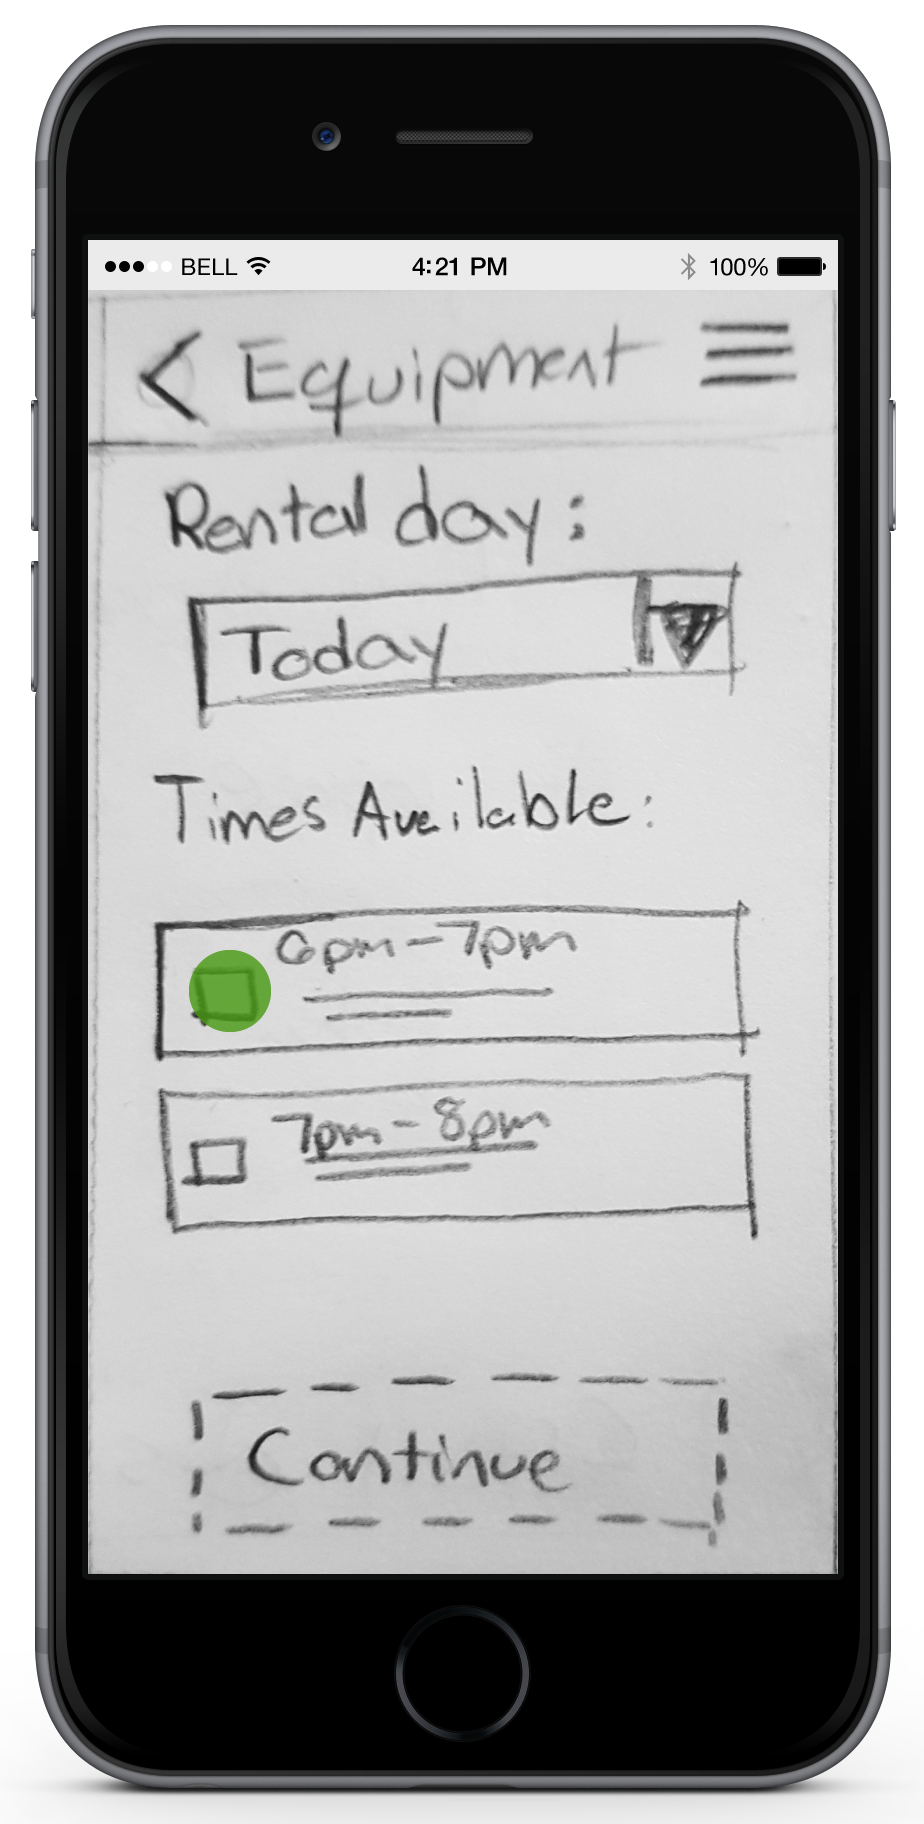 BELL 4:21 PM 100%
< Equipment
Rental day:
Today
Times Available:
6pm-7pm
7pm-8pm
Continue